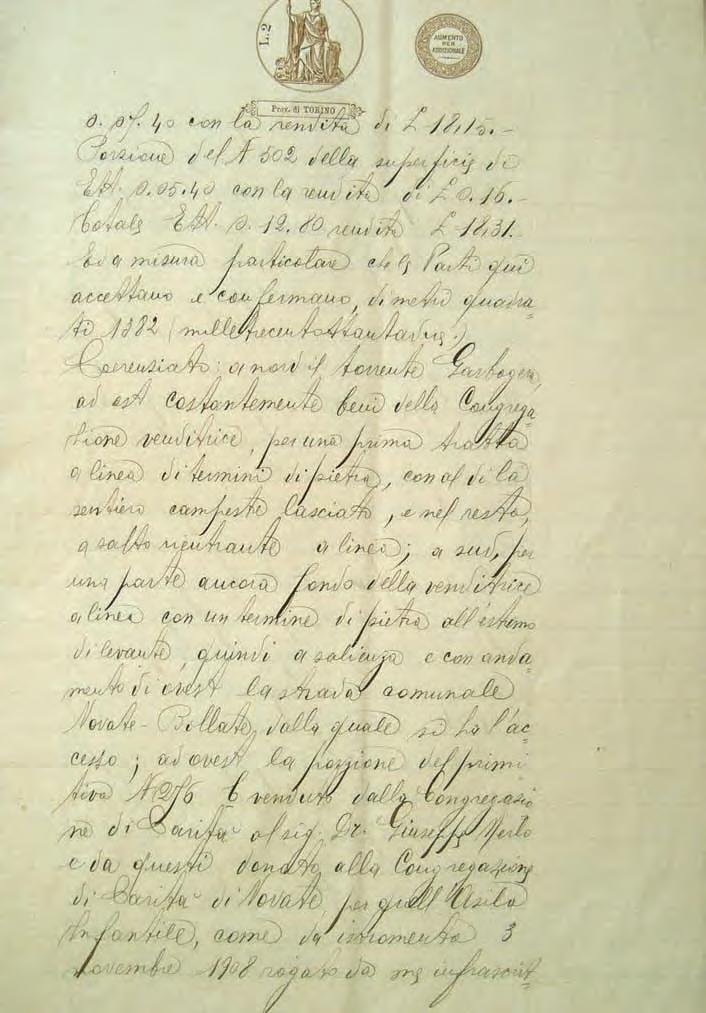 L. 2
AUMENTO
PER
ADDIZIONALE
Prov. di TORINO
0. 07. 40 con la rendita di £ 18,15.-
Porzione del N 502 della superficie di
Ett. 0.05.40 con la rendita di £ 0.16.-
Totale Ett. 0. 12. 80 rendita £ 18,31.-
Ed a misura particolare che le Parti qui
accettano e confermano, di metri quadra=
ti 1382 (milletrecentottantadue.)
Coerenziato: a nord il torrente Garbogera,
ad est costantemente beni della Congrega=
zione venditrice, per una prima tratta
a linea di termini di pietra, con al di là
sentiero campestre lasciato, e nel resto,
a salto rientrante a linea; a sud, per
una parte ancora fondo della venditrice
a linea con un termine di pietra all'estremo
di levante, quindi a salienza e con anda=
mento di ovest la strada comunale
Novate-Bollate, dalla quale si ha l'ac=
cesso; ad ovest la porzione del primi-
tivo N 276 b venduto dalla Congregazio
ne di Carità al sig. Dr. Giuseppe Merlo
e da questi donato alla Congregazione
di Carità di Novate per quell'Asilo
Infantile, come da istromento 3
novembre 1908 rogato da me infrascrit=